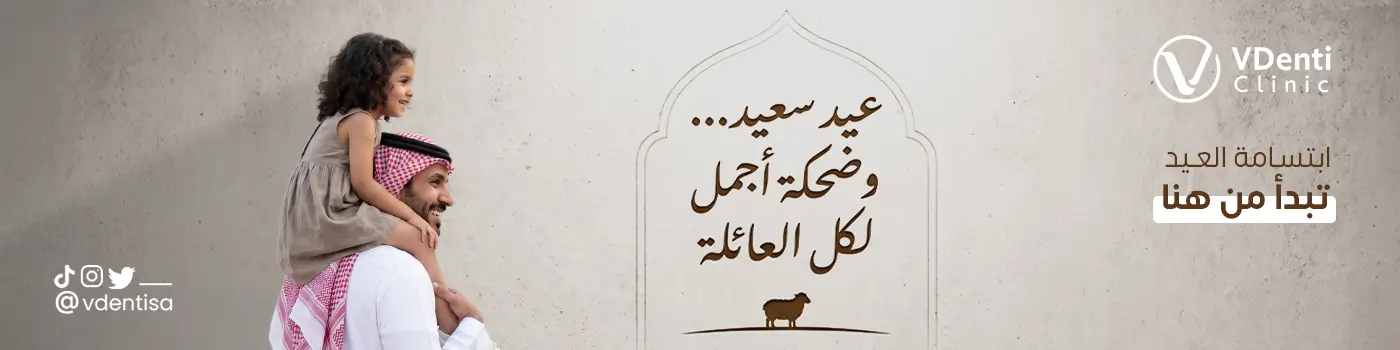 عيد سعيد...
وضحكة أجمل
لكل العائلة
VDenti
Clinic
ابتسامة العيد
تبدأ من هنا
@vdentisa